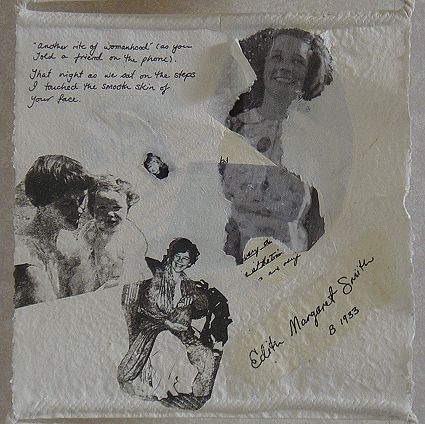 "another rite of womanhood" (as you
told a friend on the phone).
That night as we sat on the steps
I touched the smooth skin of
your face.
Edith Margaret Smith
B 1933